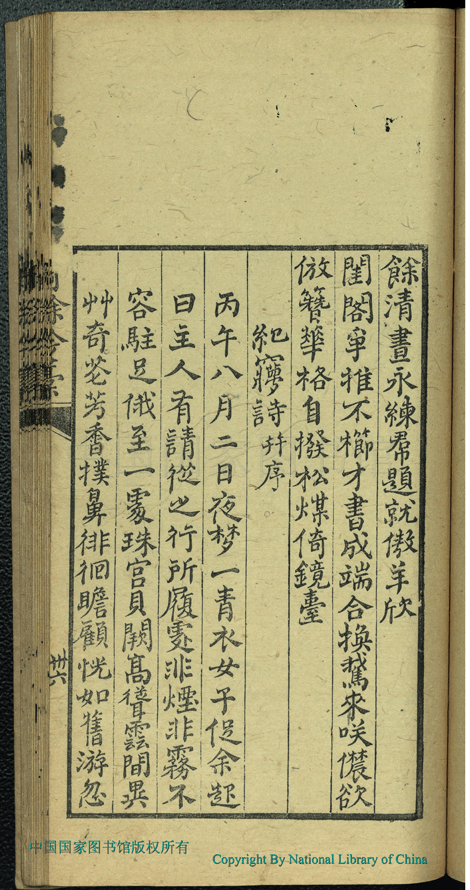 餘清晝永練帬題就傲羊欣
閨閣爭推不櫛才書成端合換鵞來咲儂欲
倣簪華格自撥松煤倚鏡臺
紀寱詩并序
丙午八月二日夜梦一青衣女子促余起
曰主人有請從之行所履䖏非煙非霧不
容駐足俄至一䖏珠宮貝闕髙聳雲間異
艸奇花芳香撲鼻徘徊瞻顧恍如舊游忽
餘
廿六
中国国家图书馆版权所有
Copyright By National Library of China